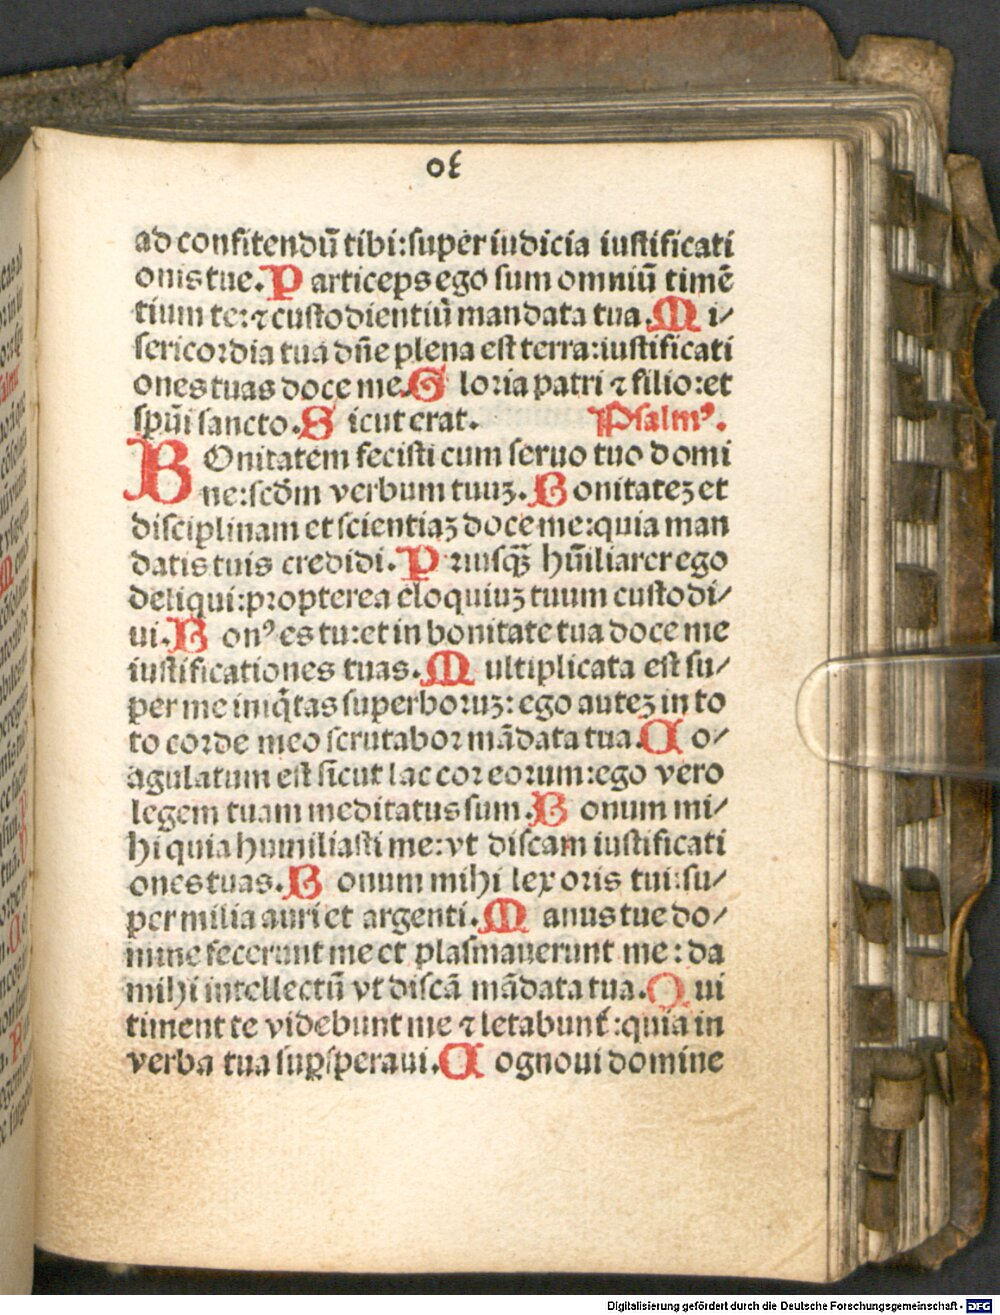 ad confitendū tibi:super iudicia iustificati
onis tue. Particeps ego sum omniū timē
tium te:⁊ custodientiū mandata tua. Mi⸗
sericordia tua dn̄e plena est terra:iustificati
ones tuas doce me. Gloria patri ⁊ filio:et
spūi sancto. Sicut erat. Psalmꝰ.
BOnitatem fecisti cum seruo tuo domi
ne:scd̄m verbum tuuꝫ. Bonitateꝫ et
disciplinam et scientiaꝫ doce me:quia man
datis tuis credidi. Priusqꝫ̄ hūiliarer ego
deliqui:propterea eloquiuꝫ tuum custodi⸗
ui. Bonꝰ es tu:et in bonitate tua doce me
iustificationes tuas. Multiplicata est su⸗
per me iniq̄tas superboruꝫ: ego auteꝫ in to
to corde meo scrutabor mādata tua. Co⸗
agulatum est sicut lac cor eorum:ego vero
legem tuam meditatus sum. Bonum mi⸗
hi quia humiliasti me:vt discam iustificati
ones tuas. Bonum mihi lex oris tui:su⸗
per milia auri et argenti. Manus tue do⸗
mine fecerunt me et plasmauerunt me: da
mihi intellectū vt discā mādata tua. Qui
timent te videbunt me ⁊ letabunt̄:quia in
verba tua suꝑsperaui. Cognoui domine
Digitalisierung gefördert durch die Deutsche Forschungsgemeinschaft - DFG